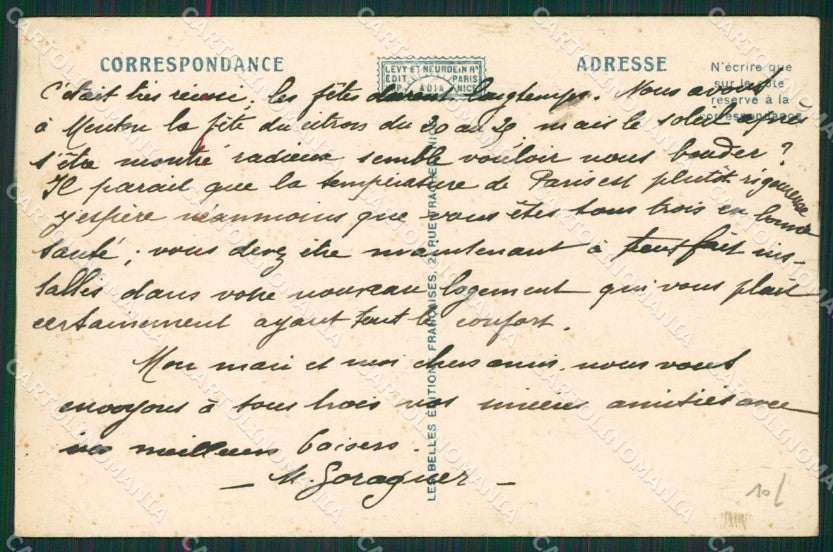 CORRESPONDANCE
LÉVY ET NEURDEIN Rs
ÉDIT. PARIS
IMP. NICE
ADRESSE
N'écrire que
sur le côté
réservé à la
correspondance
C'était très réussi, les fêtes durent longtemps. Nous avons
à Menton la fête du citrons du 20 au 29 mais le soleil qui
s'être montré radieux semble vouloir nous bouder ?
Il parait que la température de Paris est plutôt rigoureuse
J'espère néanmoins que vous êtes tous trois en bonne
santé ; vous devez être maintenant à peu fait ins-
tallés dans votre nouveau logement qui vous plait
certainement ayant tout le confort.
Mon mari et moi chers amis, nous vous
envoyons à tous trois nos amitiés avec
nos meilleurs baisers.
- M. Goraguer -
LES BELLES ÉDITIONS FRANÇAISES, 2, RUE
10/
CARTOLINOMANIA